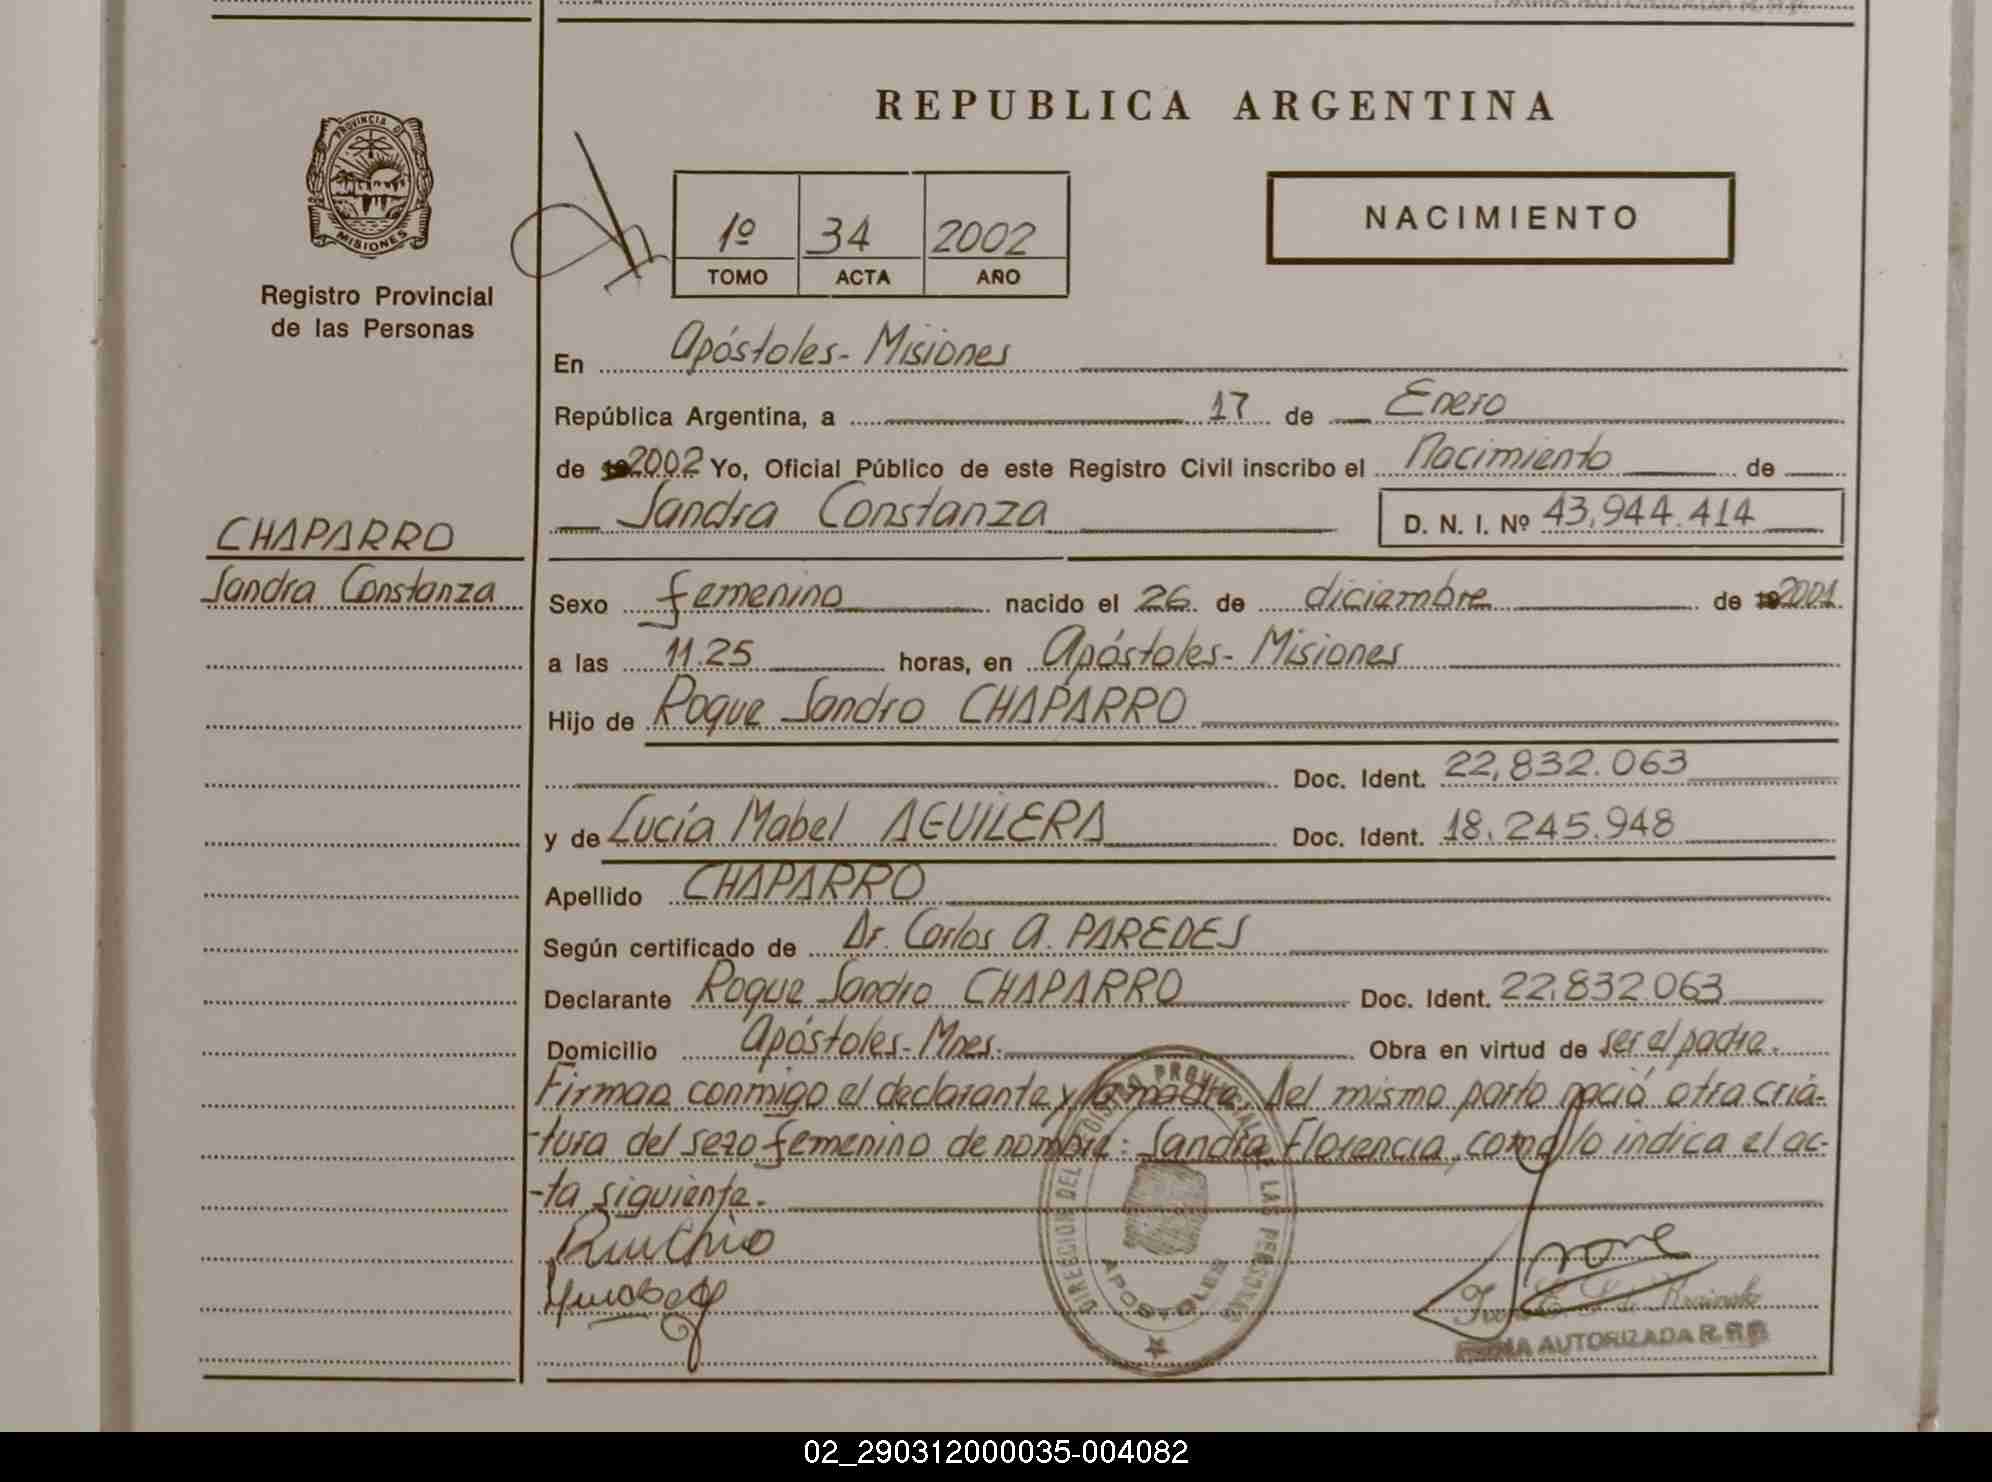 REPUBLICA ARGENTINA
PROVINCIA DE
MISIONES
Registro Provincial
de las Personas
1º 34 2002
TOMO ACTA AÑO
NACIMIENTO
En Apóstoles- Misiones
República Argentina, a 17 de Enero
de 2002 Yo, Oficial Público de este Registro Civil inscribo el Nacimiento de
Sandra Constanza D. N. I. Nº 43,944.414
CHAPARRO
Sandra Constanza
Sexo femenino nacido el 26 de diciembre de 2001
a las 11.25 horas, en Apóstoles- Misiones
Hijo de Roque Sandro CHAPARRO
Doc. Ident. 22,832.063
y de Lucía Mabel AGUILERA Doc. Ident. 18.245.948
Apellido CHAPARRO
Según certificado de Dr. Carlos A. PAREDES
Declarante Roque Sandro CHAPARRO Doc. Ident. 22.832.063
Domicilio Apóstoles- Mnes. Obra en virtud de ser el padre.
Firman conmigo el declarante y la madre. Del mismo parto nació otra cria-
-tura del sexo femenino de nombre: Sandra Florencia, como lo indica el ac-
-ta siguiente.
DIRECCION DEL REGISTRO PROVINCIAL DE LAS PERSONAS
APOSTOLES
FIRMA AUTORIZADA R.P.P.
02_290312000035-004082